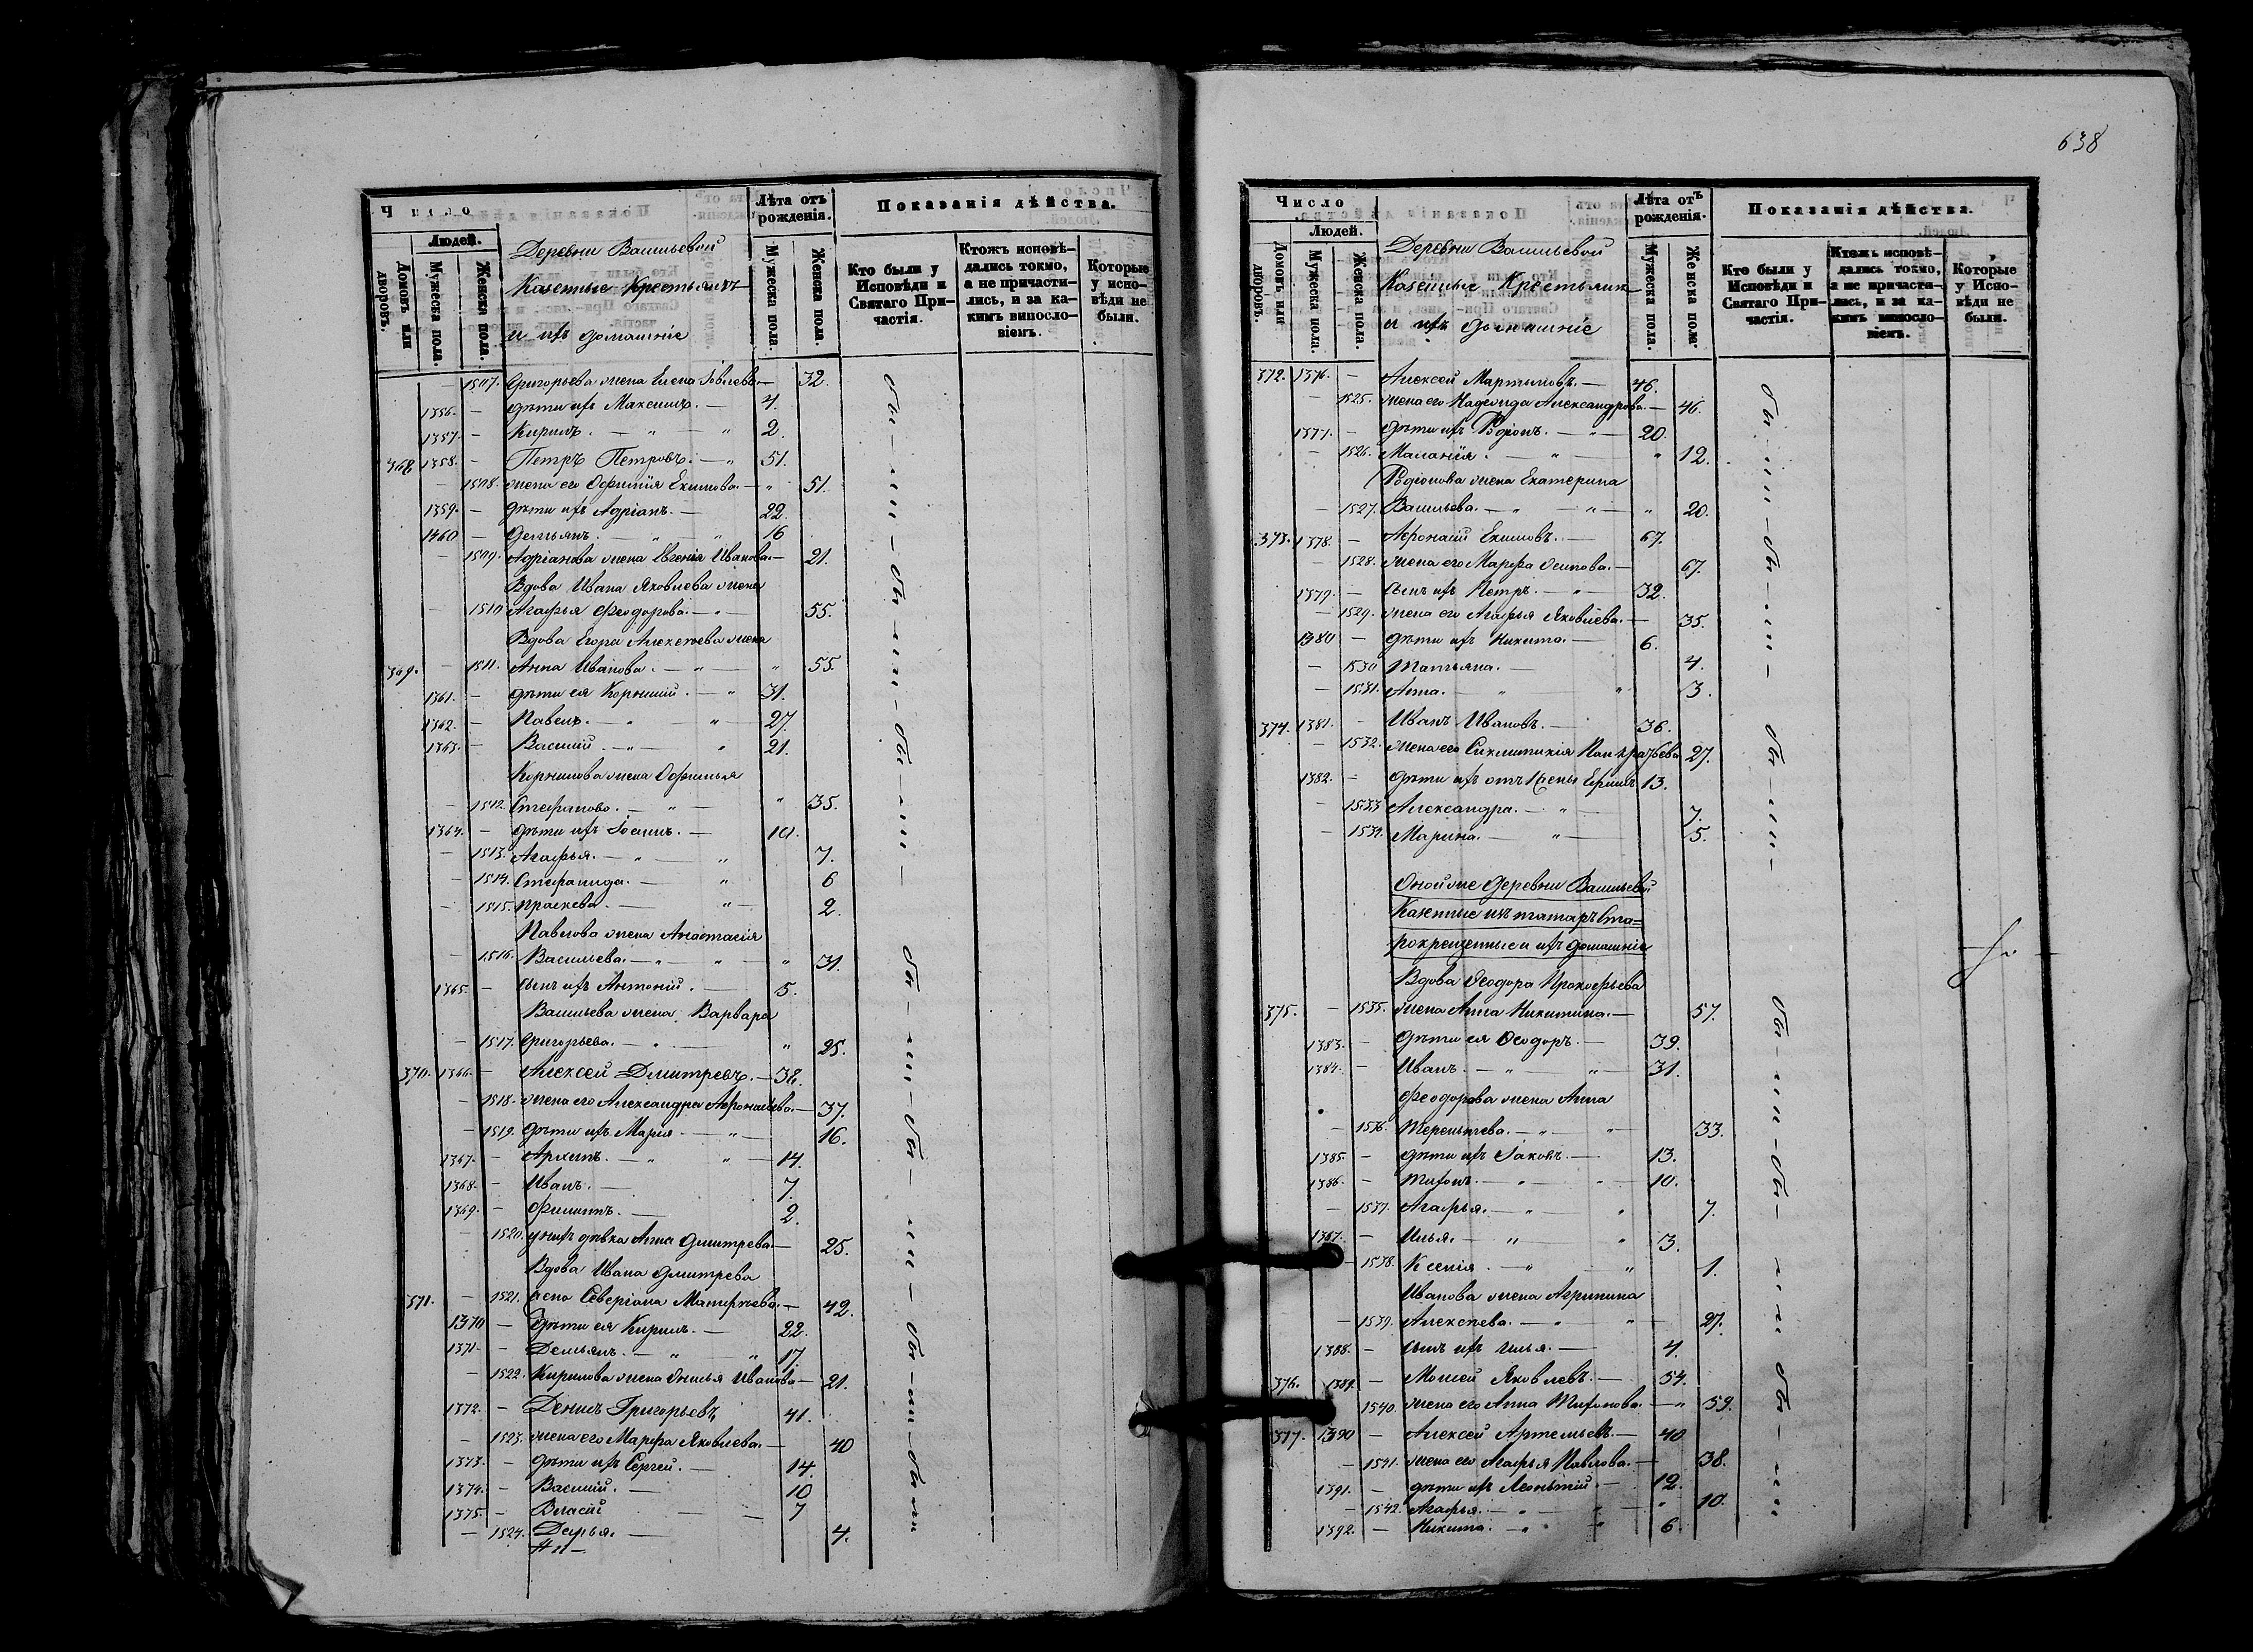 638
Число
Людей.
Домовъ или дворовъ.
Мужеска пола.
Женска пола.
Деревни Васильевой
Казенные Крестьянъ
и ихъ домашніе
Лѣта отъ рожденія.
Мужеска пола.
Женска пола.
Показанія дѣйства.
Кто были у Исповѣди и Святаго Причастія.
Ктожъ исповѣдались токмо, а не причастились, и за какимъ винословіемъ.
Которые у исповѣди не были.
1507. Григорьева жена Елена Іовлева — 32.
1356. — дѣти ихъ Максимъ. — 4.
1357. — Кирилъ. — " — " 2.
368 1358. — Петръ Петровъ. — " 51.
— 1508. жена его Офимія Екимова. — " 51.
1359. — дѣти ихъ Адріанъ. — 22.
1460 — Демьянъ. — " — " 16
— 1509. Адріанова жена Евгенія Иванова — 21.
Вдова Ивана Яковлева жена
— 1510 Агафья Феодорова. — " — 55.
Вдова Егора Алексѣева жена
369. — 1511. Анна Иванова. — " — " 55.
1361. — дѣти ея Корнилій. — " 31.
1362. — Павелъ. — " — " — 27.
1363. — Василій. — " — " 21.
Корнилова жена Офимья
— 1512. Стефанова. — " — " 35.
1364. — дѣти ихъ Іоаннъ. — 10.
— 1513. Агафья. — " — " 7.
— 1514. Стефанида. — " 6
— 1515. Праскева. — " — 2.
Павлова жена Анастасія
— 1516. Васильева. — " — " — " 31.
1365. — сынъ ихъ Антоній. — 5.
Васильева жена Варвара
— 1517. Григорьева. — " — " 25.
370. 1366. — Алексей Дмитревъ. — 38.
— 1518. жена его Александра Афонасьева. — 37.
— 1519. дѣти ихъ Марія — " — 16.
1367. — Архипъ. — " — " — 14.
1368. — Иванъ. — 7.
1369. — Филиппъ. — 2.
— 1520. у нихъ дѣвка Анна Дмитрева — 25.
Вдова Ивана Дмитрева
371. — 1521. жена Северіана — 42.
1370 — дѣти ея Кирилъ. — 22.
1371. — Демьянъ. — " — " 17.
— 1522. Кирилова жена Онисья Иванова — 21.
1372. — Денисъ Григорьевъ 41.
— 1523. жена его Марфа Яковлева. — 40
1373. — дѣти ихъ Сергей. — 14.
1374. — Василій. — 10
1375. — Власій — 7
— 1524. Дарья. — 4.
бы-ли-бы-ли-бы-ли-
бы-ли-бы-ли-бы-ли-бы ли
Число
Людей.
Домовъ или дворовъ.
Мужеска пола.
Женска пола.
Деревни Васильевой
Казенныя Крестьянъ
и ихъ домашніе
Лѣта отъ рожденія.
Мужеска пола.
Женска пола.
Показанія дѣйства.
Кто были у Исповѣди и Святаго Причастія.
Ктожъ исповѣдались токмо, а не причастились, и за какимъ винословіемъ.
Которые у Исповѣди не были.
372. 1376. — Алексей Мартыновъ. — 46.
— 1525. жена его Надежда Александрова. — 46.
1377. — дѣти ихъ Родіонъ. — " — 20.
— 1526. Маланія. — " — " 12.
Родіонова жена Екатерина
— 1527. Васильева. — " — " — " 20.
373. 1378. — Афонасій Екимовъ. — 67.
— 1528. жена его Марфа Осипова. — 67.
1379. — сынъ ихъ Петръ. — " — 32.
— 1529. жена его Агафья Яковлева. — 35.
1380 — дѣти ихъ Никита. — 6.
— 1530 Татьяна. — 4.
— 1531. Анна. — " — " 3.
374. 1381. — Иванъ Ивановъ. — 36.
— 1532. жена его Сиклитикія Панкратьева 27.
1382. — дѣти ихъ отъ 1 жены Ефимъ 13.
— 1533 Александра. — " — 7.
— 1534. Марина. — " — 5.
Оной же деревни Васильевой
Казенные изъ татаръ Ста=
рокрещенные и ихъ домашніе
Вдова Феодора Прокофьева
375. — 1535. жена Анна Никитина. — 57.
1383. — дѣти ея Феодоръ. — 39.
1384. — Иванъ. — " — " — 31.
Феодорова жена Анна
— 1536. Терентьева. — " — " — 33.
1385. — дѣти ихъ Іаковъ. — 13.
1386. — Тихонъ. — " — " — 10.
— 1537. Агафья. — " — " 7.
1387. — Илья. — " — " 3.
— 1538. Ксенія. — " — " 1.
Иванова жена Агрипина
— 1539. Алексѣева. — " — " — 27.
1388. — сынъ ихъ Илья. — 4.
376. 1389. — Моисей Яковлевъ. — 54.
1540. жена его Анна Тихонова. — " 59.
377. 1390 — Алексей Артемьевъ. — 40
— 1541. жена его Агафья Павлова. — 38.
1391. — дѣти ихъ Леонтій. — 12.
— 1542. Агафья. — " — " — " 10.
1392. — Никита. — " — " 6.
бы-ли-бы-ли- бы-ли-
бы-ли-бы-ли бы-ли